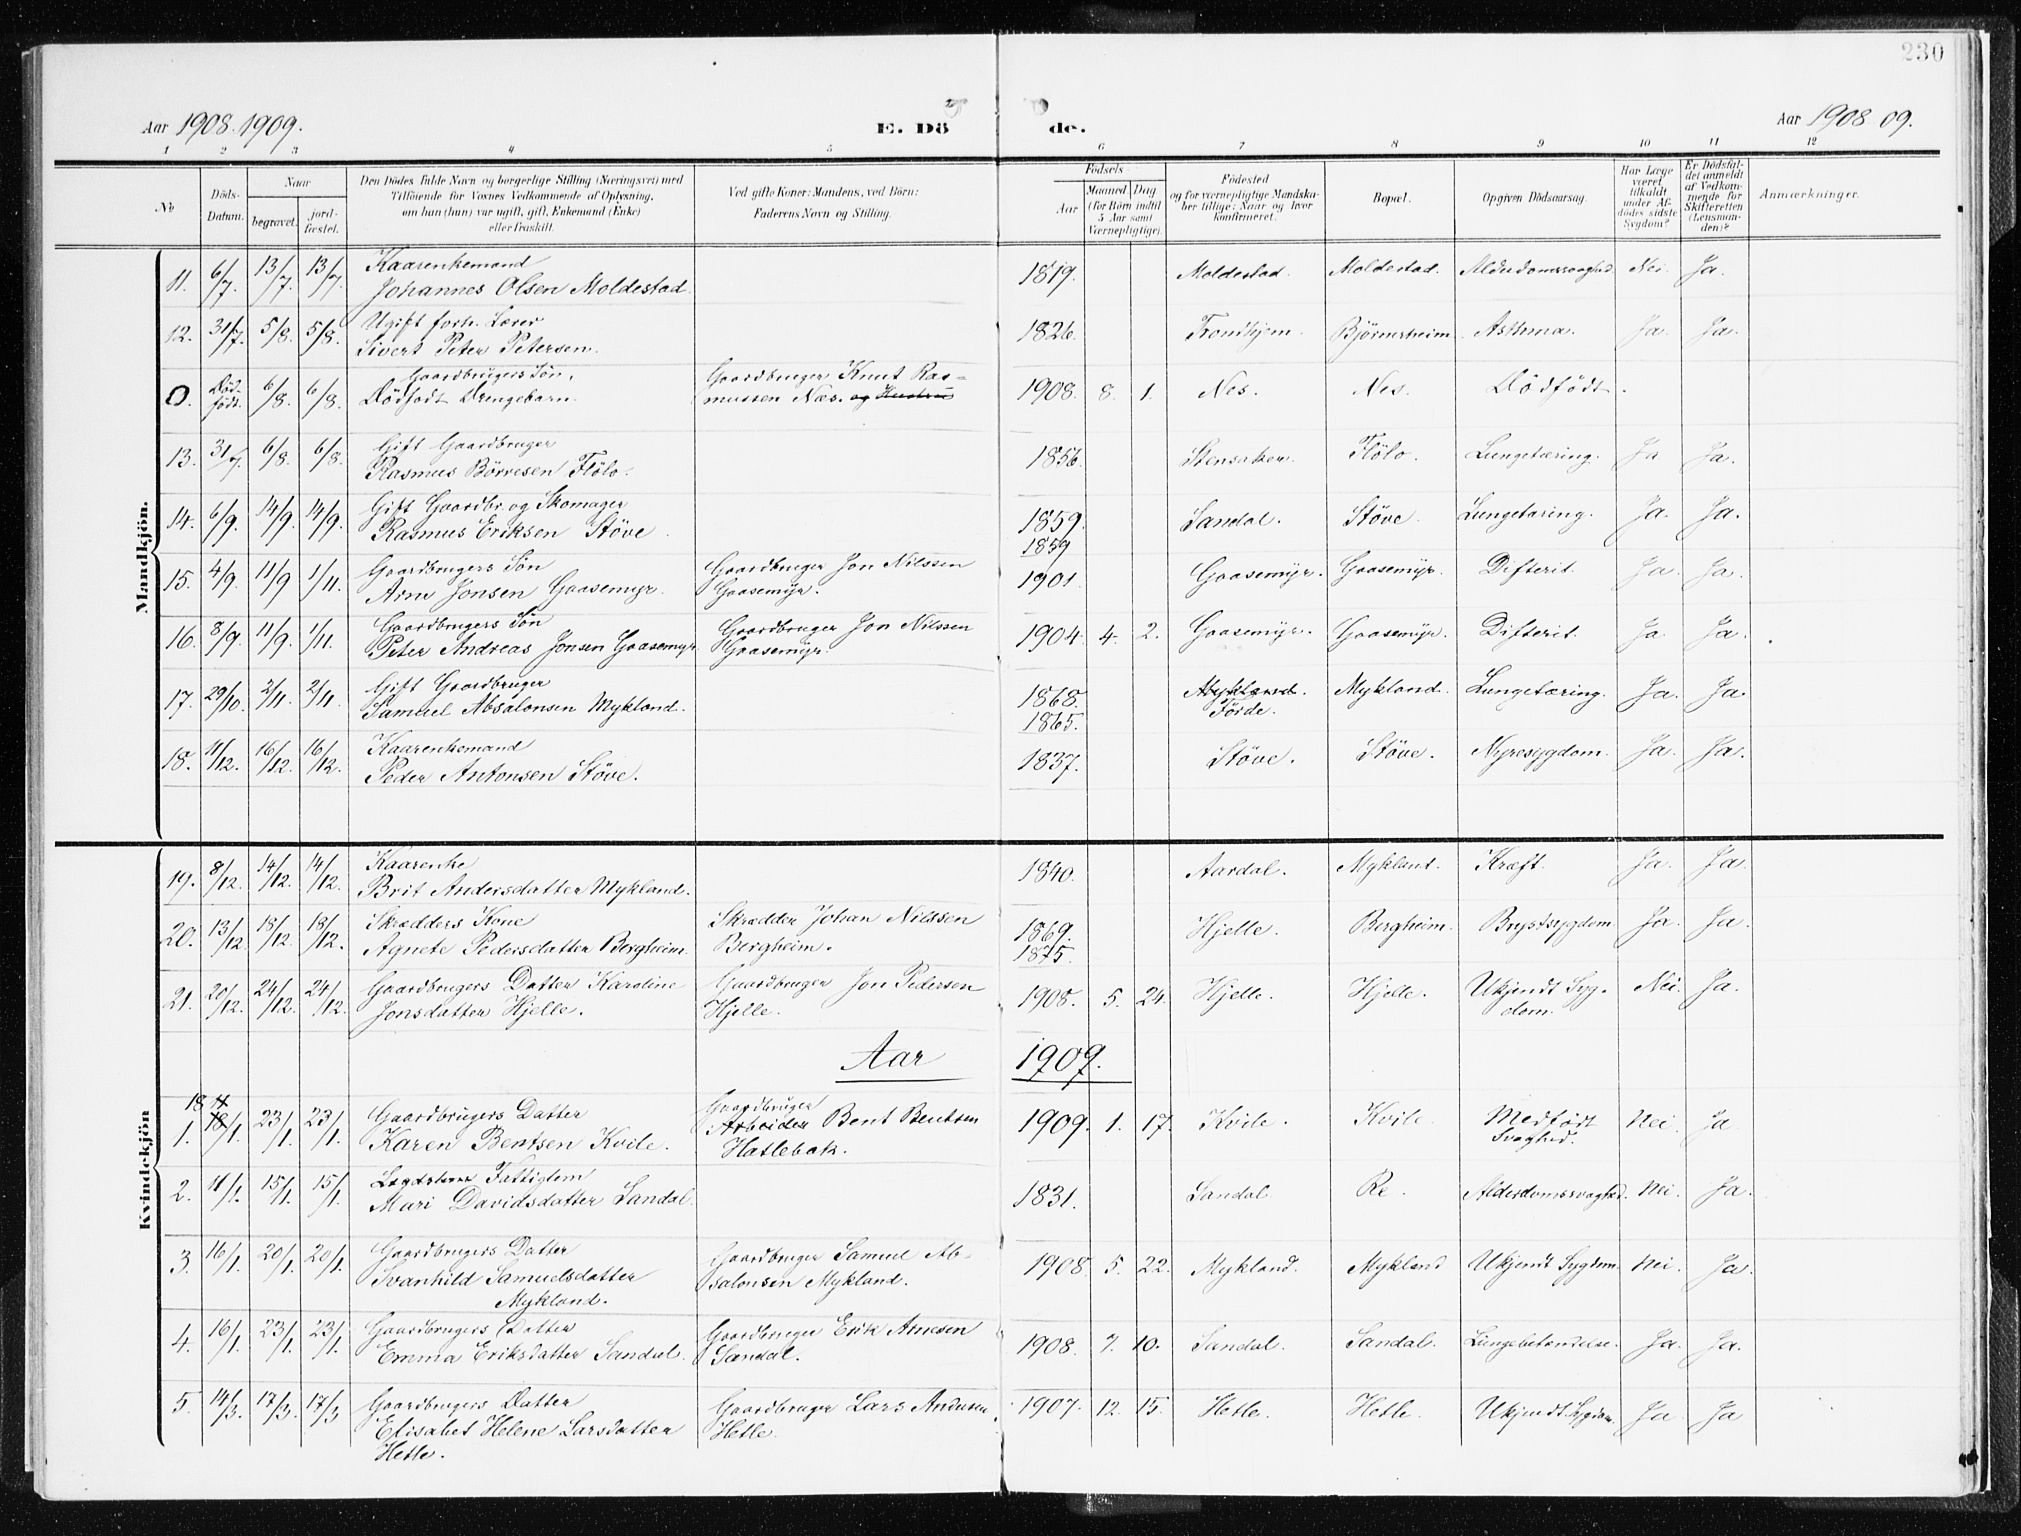 230
Aar 1908. 1909.
E. Dö
de.
Aar 1908 09.
1 2 3 4 5 6 7 8 9 10 11 12
No
Döds-
Datum.
Naar
begravet.
jord-
fæstet.
Den Dödes fulde Navn og borgerlige Stilling (Næringsvei) med
Tilföiende for Voxnes Vedkommende af Oplysning,
om han (hun) var ugift, gift, Enkemand (Enke)
eller fraskilt.
Ved gifte Koner: Mandens, ved Börn:
Faderens Navn og Stilling.
Födsels-
Aar
Maaned
Dag
(for Börn indtil
5 Aar samt
Værnepligtige).
Födested
og for værnepligtige Mandska-
ber tillige: Naar og hvor
konfirmeret.
Bopæl.
Opgiven Dödsaarsag.
Har Læge
været
tilkaldt
under Af-
dödes sidste
Sygdom?
Er Dödsfal-
det anmeldt
af Vedkom-
mende for
Skifteretten
(Lensman-
den)?
Anmærkninger.
Mandkjön.
11. 6/7. 13/7. 13/7. Kaarenkemand
Johannes Olsen Moldestad. 1819. Moldestad. Moldestad. Alderdomssvaghed. Nei. Ja.
12. 31/7. 5/8. 5/8. Ugift forh. Lærer
Sivert Peter Petersen. 1826. Trondhjem. Björnsheim. Asthma. Ja. Ja.
0. Död-
födt. 6/8. 6/8. Gaardbrugers Sön,
Dödfödt Drengebarn. Gaardbruger Knut Ras-
mussen Næs. og Hustru 1908. 8. 1. Nes. Nes. Dödfödt.
13. 31/7. 6/8. 6/8. Gift Gaardbruger
Rasmus Börresen Flölo. 1856. Stensaker. Flölo. Lungetæring. Ja Ja.
14. 6/9. 14/9. 14/9. Gift Gaardbr. og Skomager
Rasmus Eriksen Stöve 1859.
1859 Sandal. Stöve. Lungetæring. Ja. Ja.
15. 4/9. 11/9 1/11. Gaardbrugers Sön
Arne Jonsen Gaasemyr. Gaardbruger Jon Nilssen
Gaasemyr. 1901. Gaasemyr. Gaasemyr. Difterit. Ja. Ja.
16. 8/9. 11/9. 1/11. Gaardbrugers Sön
Peter Andreas Jonsen Gaasemyr. Gaardbruger Jon Nilssen
Gaasemyr. 1904. 4. 2. Gaasemyr. Gaasemyr. Difterit. Ja. Ja.
17. 29/10. 2/11. 2/11. Gift Gaardbruger
Samuel Absalonsen Mykland. 1868.
1865. Mykland.
Förde. Mykland. Lungetæring. Ja. Ja.
18. 11/12. 16/12. 16/12. Kaarenkemand
Peder Antonsen Stöve. 1837. Stöve. Stöve. Nyresygdom. Ja. Ja.
Kvindekjön
19. 8/12. 14/12. 14/12. Kaarenke
Brit Andersdatter Mykland. 1840. Aardal. Mykland. Kræft. Ja. Ja.
20. 13/12 18/12. 18/12. Skrædders Kone
Agnete Pedersdatter Bergheim. Skrædder Johan Nilssen
Bergheim. 1869.
1875. Hjelle. Bergheim. Brystsygdom. Ja. Ja.
21. 20/12. 24/12. 24/12. Gaardbrugers Datter Karoline
Jonsdatter Hjelle. Gaardbruger Jon Pedersen
Hjelle. 1908. 5. 24. Hjelle. Hjelle. Ukjendt Syg-
dom. Nei. Ja.
Aar 1909.
18
1. 18/1. 23/1. 23/1. Gaardbrugers Datter
Karen Bentsen Kvile. Gaardbruger
Arbeider Bent Bentsen
Hatlebak. 1909. 1. 17. Kvile. Kvile. Medfödt
Svaghed. Nei. Ja
2. 11/1. 15/1. 15/1. Fattiglem
Mari Davidsdatter Sandal. 1831. Sandal Re. Alderdomssvaghed. Nei. Ja.
3. 16/1. 20/1. 20/1. Gaardbrugers Datter
Svanhild Samuelsdatter
Mykland. Gaardbruger Samuel Ab-
salonsen Mykland. 1908. 5. 22. Mykland. Mykland Ukjendt Sygdom. Nei. Ja.
4. 16/1. 23/1. 23/1. Gaardbrugers Datter
Emma Eriksdatter Sandal. Gaardbruger Erik Arnesen
Sandal. 1908. 7. 10. Sandal. Sandal. Lungebetændelse. Ja. Ja.
5. 14/3. 17/3. 17/3 Gaardbrugers Datter
Elisabet Helene Larsdatter
Hetle. Gaardbruger Lars Andersen
Hetle. 1907. 12. 15. Hetle. Hetle. Ukjendt Sygdom. Ja. Ja